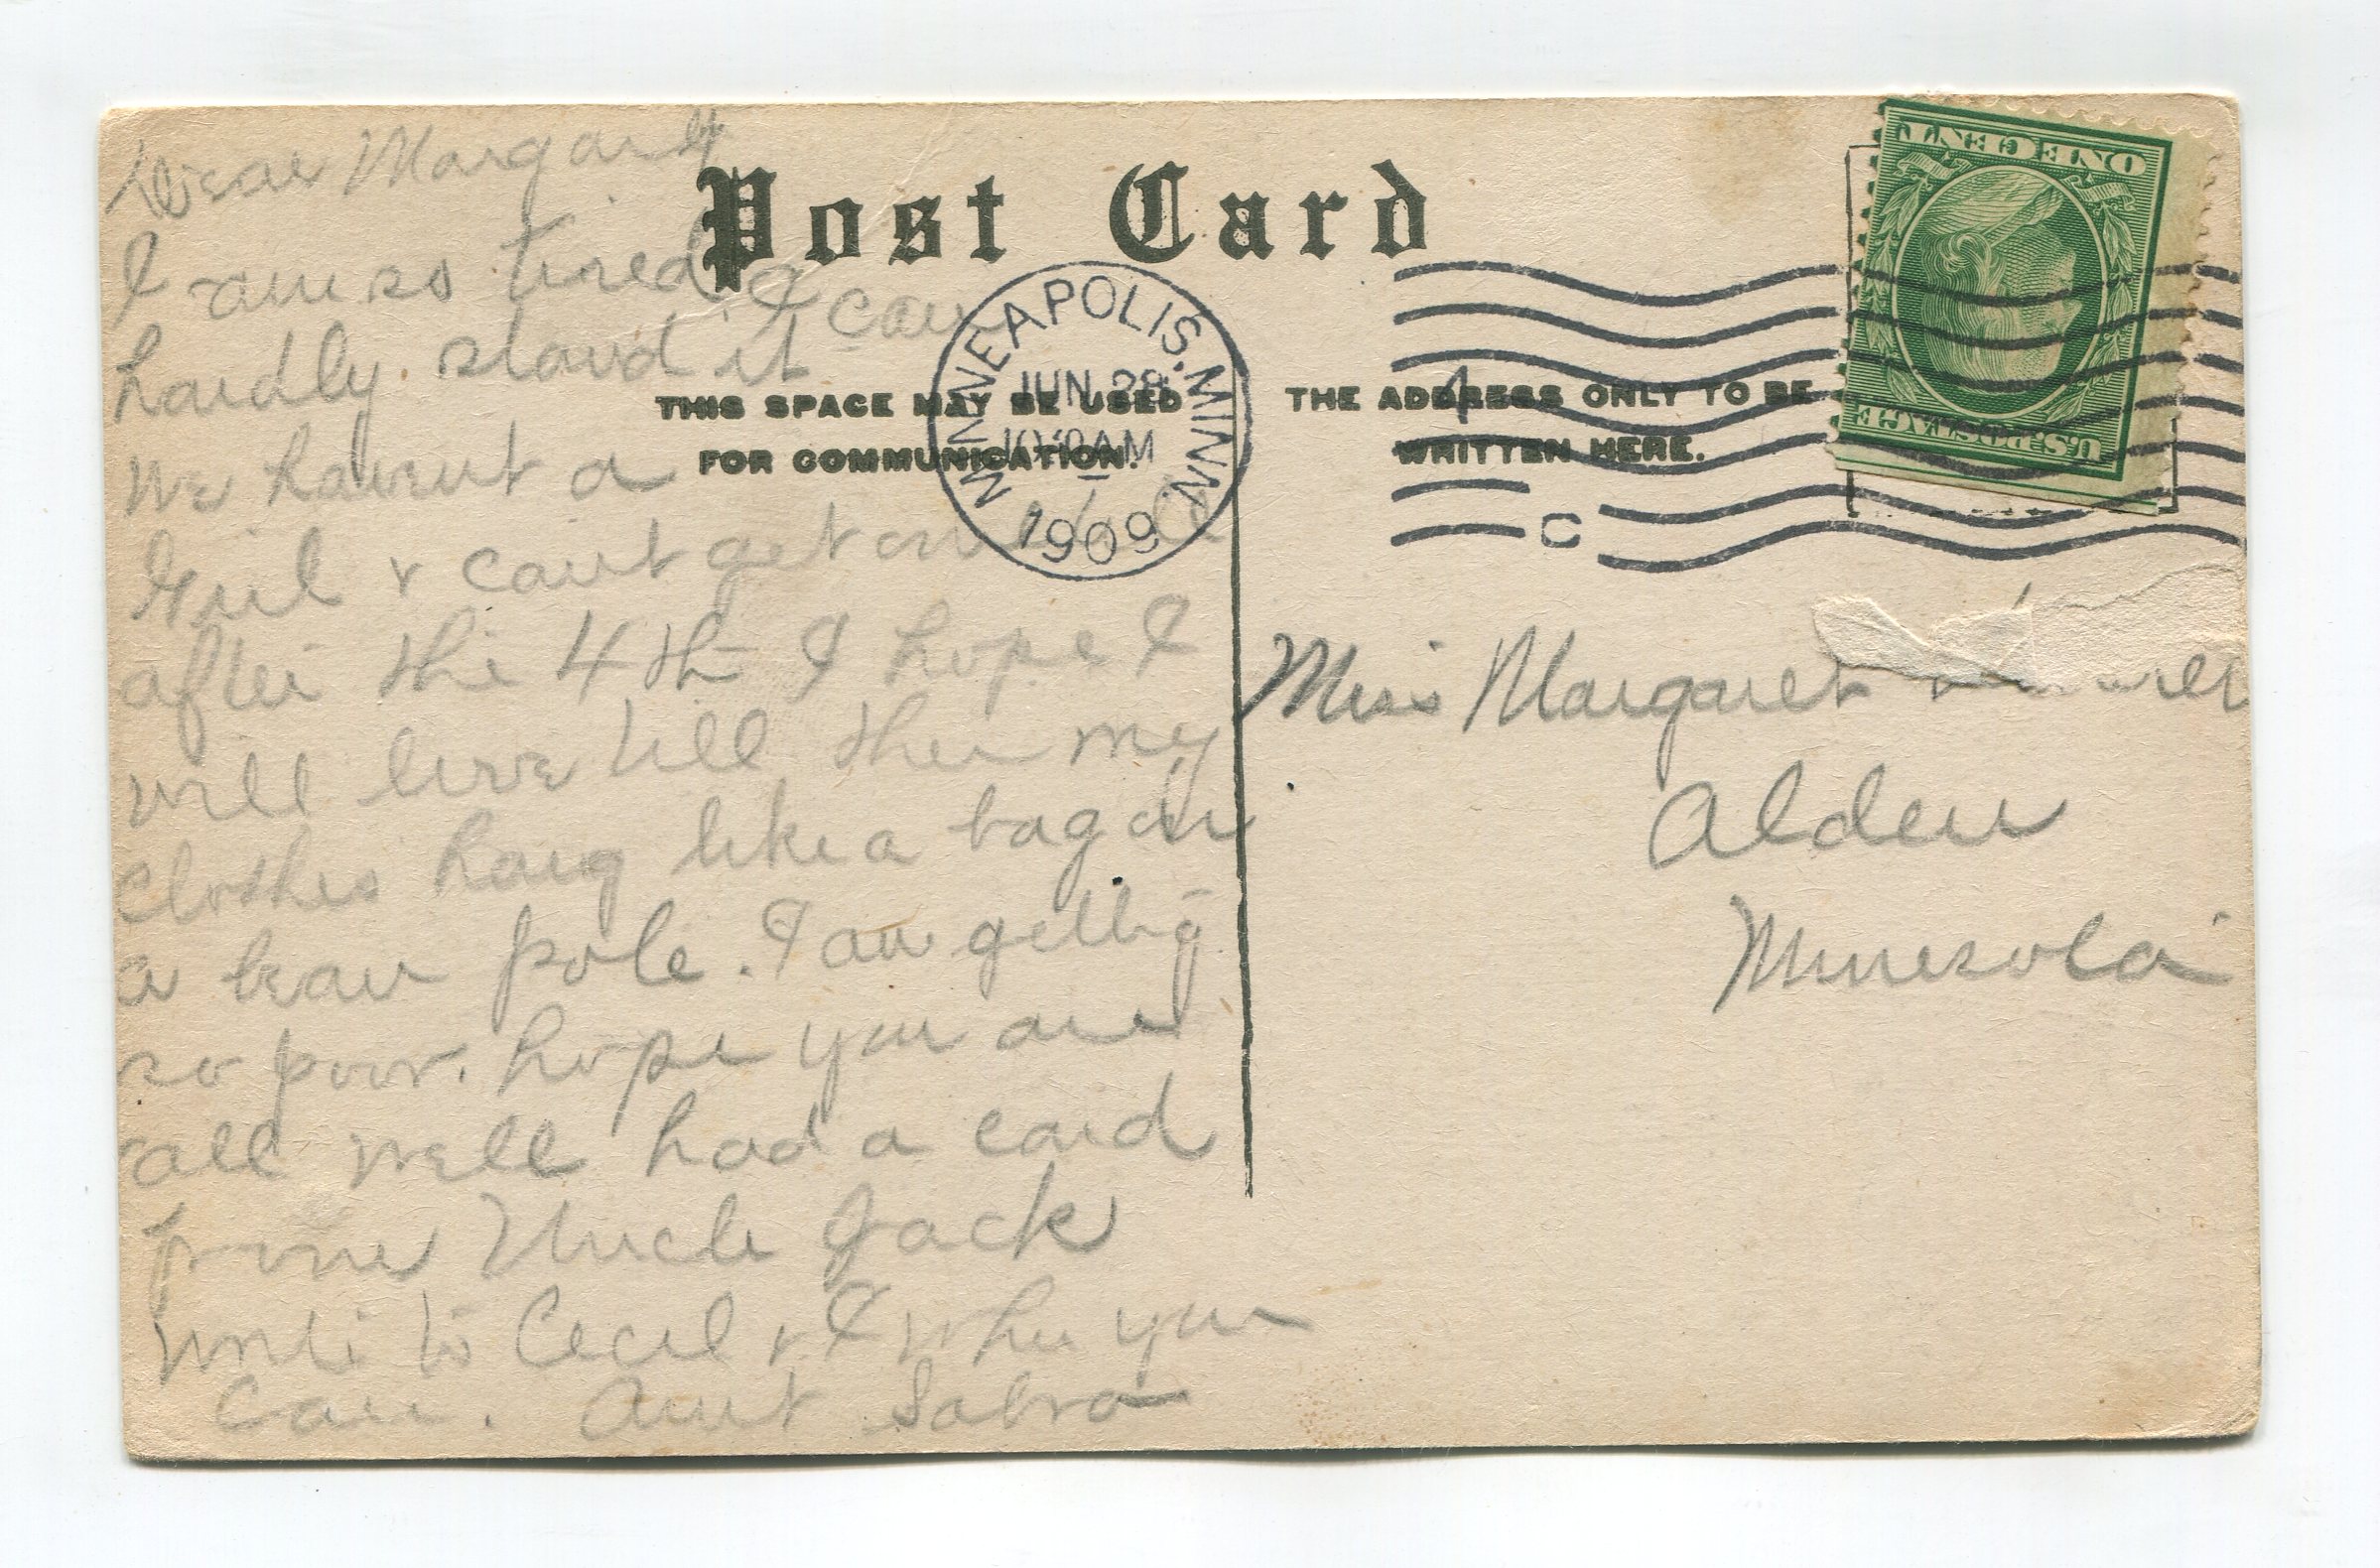 Dear Margaret
I am so tired I can
hardly stand it
We havent a
Girl & cant get one
after the 4th I hope I
will live till then my
clothes hang like a bag on
a bean pole. I am getting
so poor. hope you are
all well had a card
from Uncle Jack
write to Cecil & I when you
can. Aunt Sabra
Post Card
THIS SPACE MAY BE USED
FOR COMMUNICATION.
MINNEAPOLIS, MINN.
JUN 28
AM
1909
THE ADDRESS ONLY TO BE
WRITTEN HERE.
C
ONE CENT
U.S. POSTAGE
Miss Margaret
Alden
Minnesota